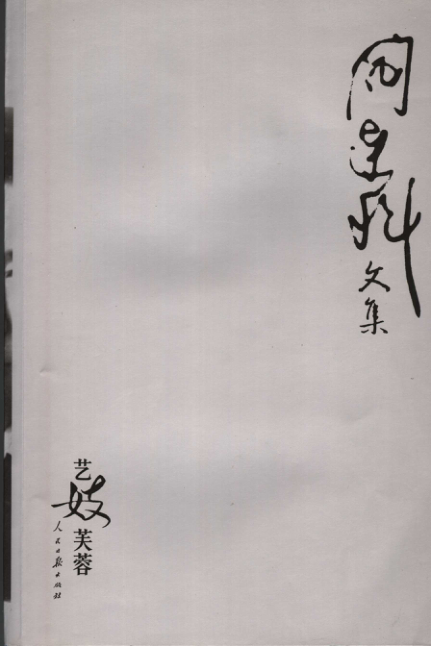 阎连科
文集
艺妓芙蓉
人民日报出版社